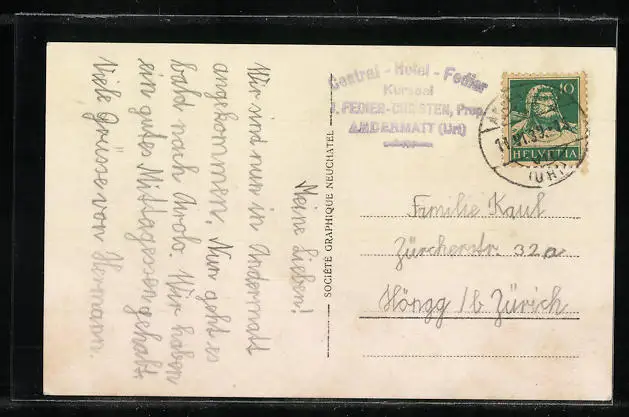 Meine Lieben!
Wir sind nun in Andermatt
angekommen. Nun geht es
bald nach Airolo. Wir haben
ein gutes Mittagessen gehabt.
Viele Grüsse von Hermann.
SOCIÉTÉ GRAPHIQUE NEUCHATEL
Central - Hotel - Fedier
Kursaal
FEDIER-CHRISTEN, Prop.
ANDERMATT (Uri)
10
HELVETIA
(URI)
Familie Kauf
Zürcherstr. 32a
Höngg / b Zürich